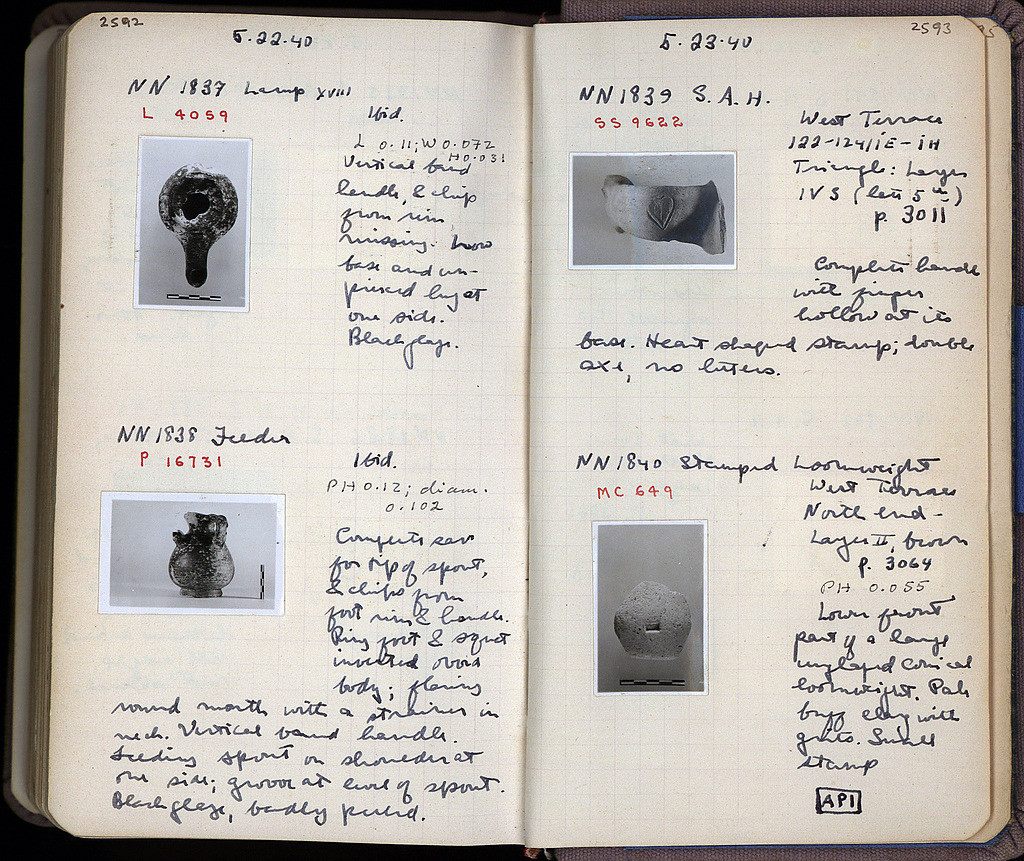 2592
5.22.40
NN 1837 Lamp XVIII
L 4059
Ibid.
L 0.11; W 0.072
H 0.031
Vertical band
handle, & chip
from rim
missing. Low
base and un-
pierced lug at
one side.
Black glaze.
NN 1838 Feeder
P 16731
Ibid.
PH 0.12; diam.
0.102
Complete save
for tip of spout,
& chips from
foot rim & handle.
Ring foot & squat
inverted ovoid
body; flaring
round mouth with a strainer in
neck. Vertical band handle.
Feeding spout on shoulder at
one side; groove at level of spout.
Black glaze, badly peeled.
2593
5.23.40
NN 1839 S.A.H.
SS 9622
West Terrace
122-124/ΙΕ-ΙΗ
Triangle: Layer
IV S (late 5th)
p. 3011
Complete handle
with finger
hollow at its
base. Heart shaped stamp; double
axe, no letters.
NN 1840 Stamped Loomweight
MC 649
West Terrace
North end -
Layer II, brown
p. 3064
PH 0.055
Lower front
part of a large
unglazed conical
loomweight. Pale
buff clay with
grits. Small
stamp
API